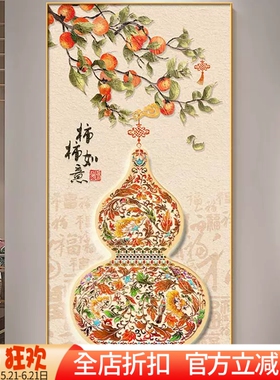 柿柿
如意
狂欢
5.21-6.21日
全店折扣
官方立减